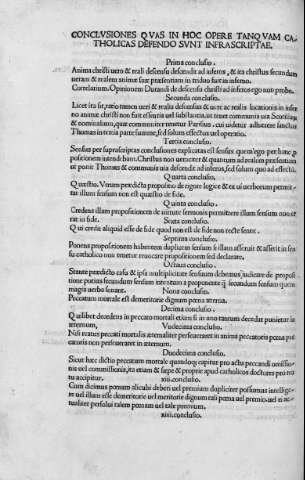 CONCLVSIONES QVAS IN HOC OPERE TANQVAM CA
THOLICAS DEFENDO SVNT INFRASCRIPTAE.
Prima conclusio.
Anima christi uere & reali descensu descendit ad inferos, & ita christus secundum
ueram & realem animæ suæ præsentiam in triduo fuit in inferno.
Correlarium. Opinionem Durandi de descensu christi ad inferos ego non probo.
Secunda conclusio.
Licet ita sit,
no anima christi non fuit
& nominalium, quæ communiter tenetur Parisius, cui uidetur adhærere sanctus
Thomas in tertia parte summæ, sed solum effectus uel operatio.
Tertia conclusio.
Sensus per suprascriptas conclusiones explicatus est sensus quem ego per hanc p
positionem intendebam. Christus non ueraciter & quantum ad realem præsentiam
ut ponit Thomas & communis uia descendit ad inferos, sed solum quo ad effectū.
Quarta conclusio.
Quæstio. Vtrum prædicta propositio de rigore logicæ & ex ui uerborum permit
tat illum sensum non est quæstio de fide.
Quinta conclusio.
Credens illam propositionem de uirtute sermonis permittere illum sensum non er
rat in fide.
Sexta conclusio.
Qui credit aliquid esse de fide quod non est de fide non recte sentit.
Septima conclusio.
Ponens propositionem habentem duplicem sensum & illam asserit & asserit in sen
su catholico non tenetur reuocare propositionem sed declarare.
Octaua conclusio.
Stante prædicto casu & ipsa multiplicitate sensuum debemus iudicare de proposi
tione potius secundum sensum intentum a proponente q̃ secundum sensum quem
magis uerba sonant.
Nona conclusio.
Peccatum mortale est demeritorie dignum pœna æterna.
Decima conclusio.
Quilibet decedens in peccato mortali etiam si in eo tantum decedat punietur in
æternum.
Vndecima conclusio.
Nisi reatus peccati mortalis æternaliter perseueraret in anima peccatoris pœna pec
catoris non perseueraret in æternum.
Duodecima conclusio.
Sicut hæc dictio peccatum mortale quandoq; capitur pro actu peccandi omissio
nis uel commissionis, ita etiam & sæpe & proprie apud catholicos doctores pro rea
tu accipitur.
xiii. conclusio.
Cum dicimus pœnam alicui deberi uel præmium dupliciter possumus intellige
re uel illum esse demeritorie uel meritorie dignum tali pœna uel præmio uel
tualiter persolui talem pœnam uel tale præmium.
xiiii. conclusio.